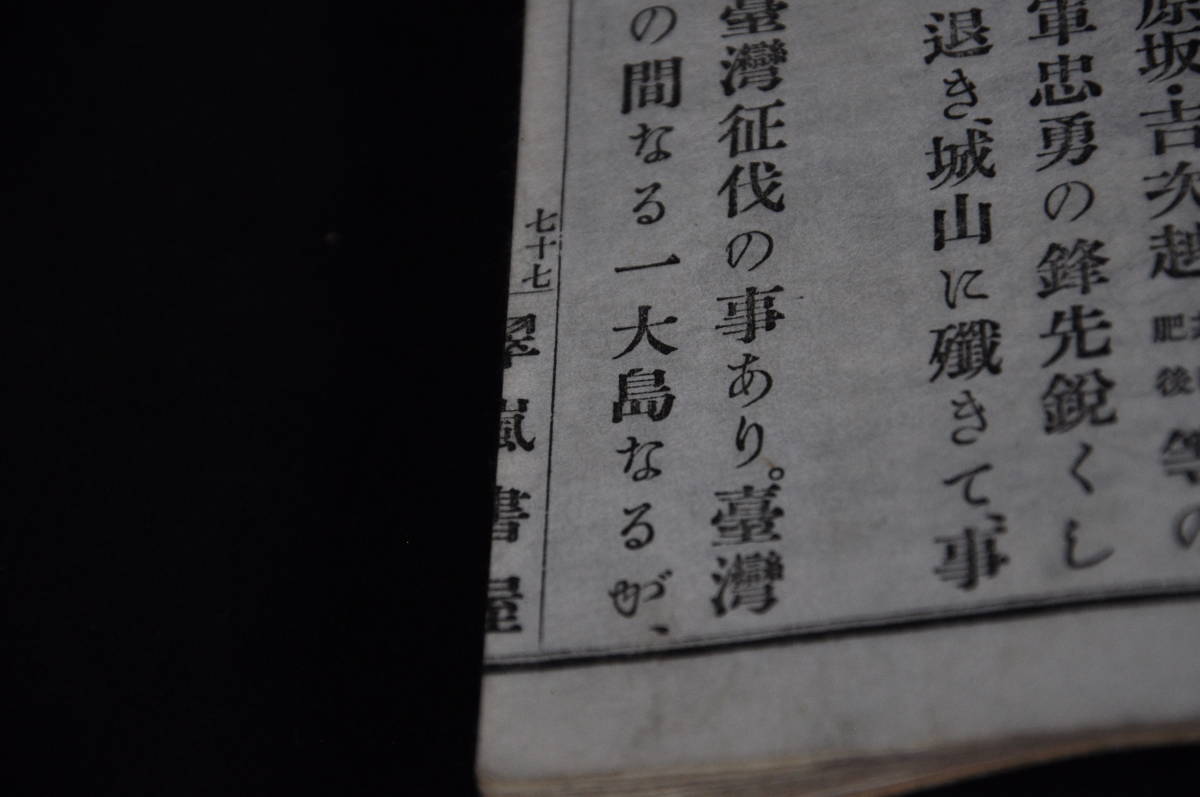 原坂・吉次越肥後等の
軍忠勇の鋒先鋭くし
退き、城山に殲きて、事
臺灣征伐の事あり。臺灣
の間なる一大島なるが、
七十七
嵐書屋